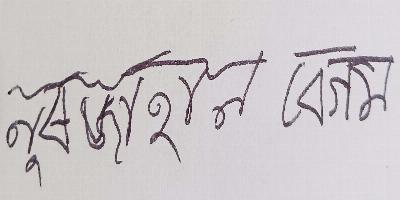 নুরজাহান বেগম